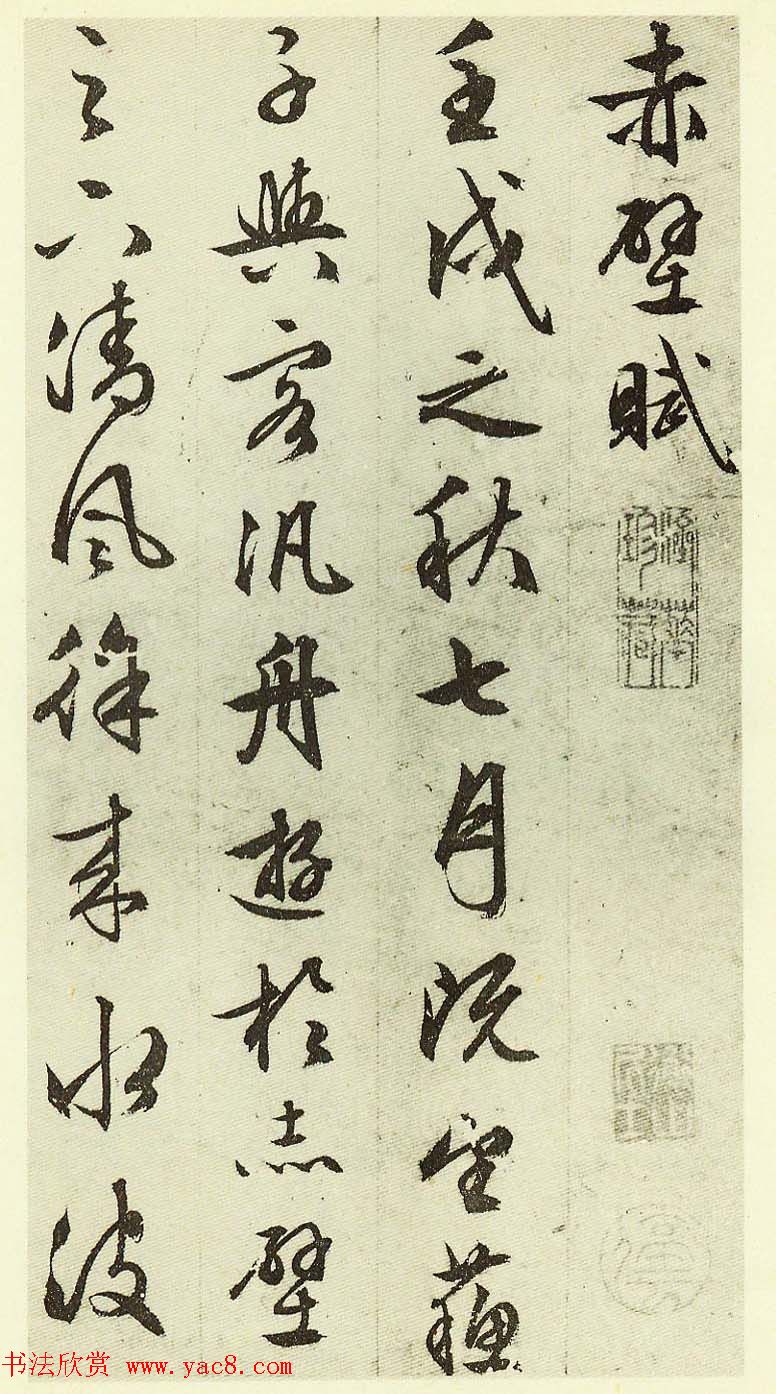 赤壁賦
壬戌之秋七月既望蘇
子與客汎舟遊於赤壁
之下清風徐來水波
书法欣赏 www.yac8.com